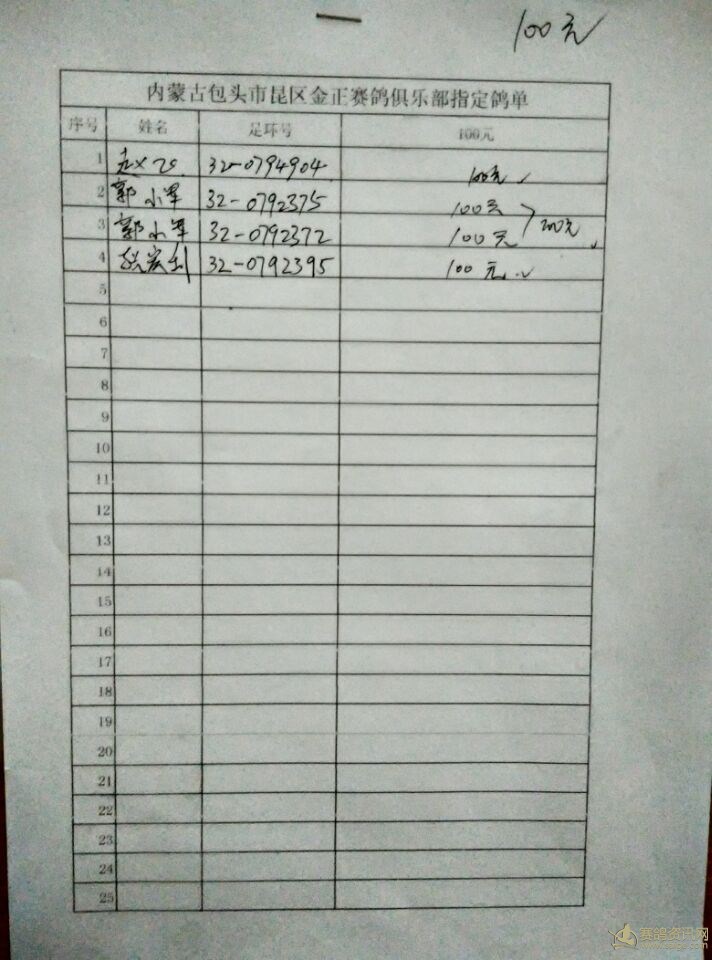 100元
内蒙古包头市昆区金正赛鸽俱乐部指定鸽单
序号 姓名 足环号 100元
1 赵 32-0794904 100元 ✓
2 郭小军 32-0792375 100元
200元 ✓
3 郭小军 32-0792372 100元
4 宏利 32-0792395 100元 ✓
5
6
7
8
9
10
11
12
13
14
15
16
17
18
19
20
21
22
23
24
25
赛鸽资讯网